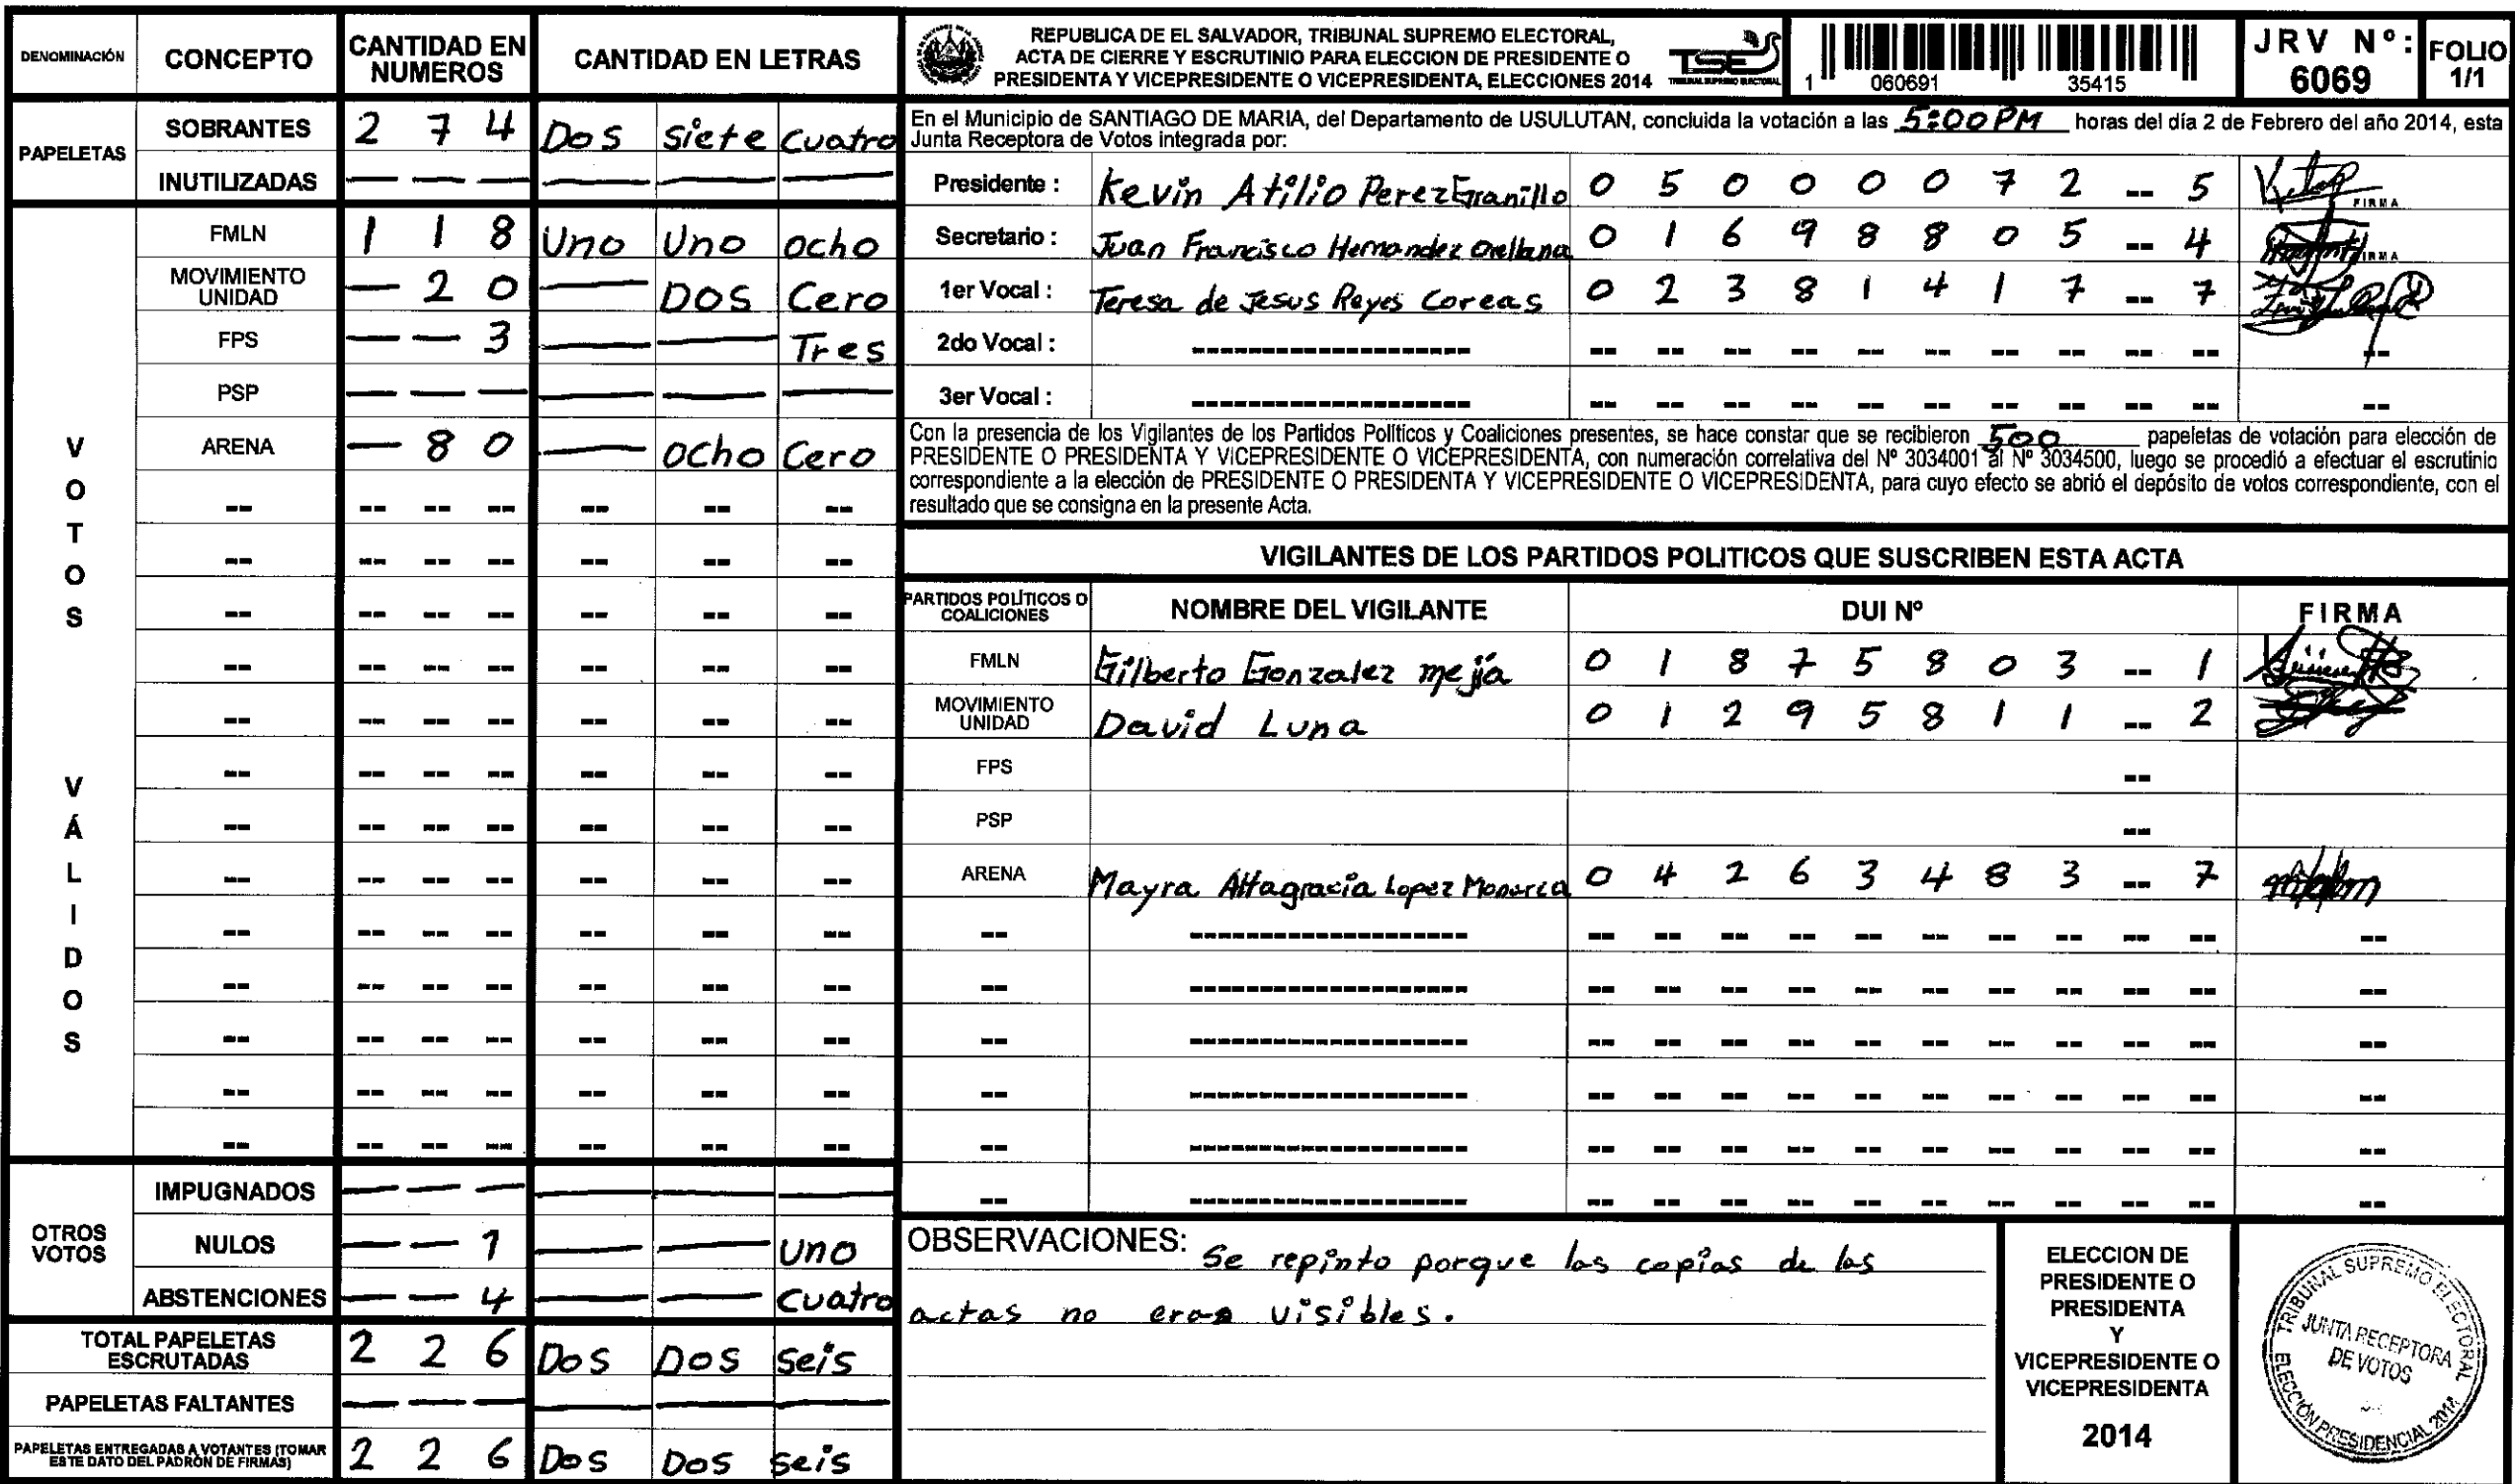 DENOMINACIÓN CONCEPTO CANTIDAD EN NUMEROS CANTIDAD EN LETRAS
PAPELETAS
SOBRANTES 2 7 4 Dos siete cuatro
INUTILIZADAS — — — — — —
VOTOS VÁLIDOS
FMLN 1 1 8 Uno Uno ocho
MOVIMIENTO UNIDAD — 2 0 — DOS Cero
FPS — — 3 — — Tres
PSP — — — — — —
ARENA — 8 0 — ocho Cero
-- -- -- -- -- -- --
-- -- -- -- -- -- --
-- -- -- -- -- -- --
-- -- -- -- -- -- --
-- -- -- -- -- -- --
-- -- -- -- -- -- --
-- -- -- -- -- -- --
-- -- -- -- -- -- --
-- -- -- -- -- -- --
-- -- -- -- -- -- --
-- -- -- -- -- -- --
-- -- -- -- -- -- --
-- -- -- -- -- -- --
OTROS VOTOS
IMPUGNADOS — — — — — —
NULOS — — 1 — — uno
ABSTENCIONES — — 4 — — cuatro
TOTAL PAPELETAS ESCRUTADAS 2 2 6 Dos Dos seis
PAPELETAS FALTANTES — — — — — —
PAPELETAS ENTREGADAS A VOTANTES (TOMAR ESTE DATO DEL PADRÓN DE FIRMAS) 2 2 6 Dos Dos seis
REPUBLICA DE EL SALVADOR, TRIBUNAL SUPREMO ELECTORAL,
ACTA DE CIERRE Y ESCRUTINIO PARA ELECCION DE PRESIDENTE O
PRESIDENTA Y VICEPRESIDENTE O VICEPRESIDENTA, ELECCIONES 2014
TSE
TRIBUNAL SUPREMO ELECTORAL
1 060691 35415
JRV Nº: 6069
FOLIO 1/1
En el Municipio de SANTIAGO DE MARIA, del Departamento de USULUTAN, concluida la votación a las 5:00 PM horas del día 2 de Febrero del año 2014, esta
Junta Receptora de Votos integrada por:
Presidente : Kevin Atilio Perez Granillo 0 5 0 0 0 0 7 2 -- 5 FIRMA
Secretario : Juan Francisco Hernandez Orellana 0 1 6 9 8 8 0 5 -- 4 FIRMA
1er Vocal : Teresa de Jesus Reyes Coreas 0 2 3 8 1 4 1 7 -- 7
2do Vocal : ------------------ -- -- -- -- -- -- -- -- -- -- --
3er Vocal : ------------------ -- -- -- -- -- -- -- -- -- -- --
Con la presencia de los Vigilantes de los Partidos Políticos y Coaliciones presentes, se hace constar que se recibieron 500 papeletas de votación para elección de
PRESIDENTE O PRESIDENTA Y VICEPRESIDENTE O VICEPRESIDENTA, con numeración correlativa del Nº 3034001 al Nº 3034500, luego se procedió a efectuar el escrutinio
correspondiente a la elección de PRESIDENTE O PRESIDENTA Y VICEPRESIDENTE O VICEPRESIDENTA, para cuyo efecto se abrió el depósito de votos correspondiente, con el
resultado que se consigna en la presente Acta.
VIGILANTES DE LOS PARTIDOS POLITICOS QUE SUSCRIBEN ESTA ACTA
PARTIDOS POLÍTICOS O COALICIONES NOMBRE DEL VIGILANTE DUI Nº FIRMA
FMLN Gilberto Gonzalez mejía 0 1 8 7 5 8 0 3 -- 1
MOVIMIENTO UNIDAD David Luna 0 1 2 9 5 8 1 1 -- 2
FPS --
PSP --
ARENA Mayra Altagracia Lopez 0 4 2 6 3 4 8 3 -- 7
-- ------------------ -- -- -- -- -- -- -- -- -- -- --
-- ------------------ -- -- -- -- -- -- -- -- -- -- --
-- ------------------ -- -- -- -- -- -- -- -- -- -- --
-- ------------------ -- -- -- -- -- -- -- -- -- -- --
-- ------------------ -- -- -- -- -- -- -- -- -- -- --
-- ------------------ -- -- -- -- -- -- -- -- -- -- --
OBSERVACIONES: Se repinto porque las copias de las
actas no eran visibles.
ELECCION DE
PRESIDENTE O
PRESIDENTA
Y
VICEPRESIDENTE O
VICEPRESIDENTA
2014
TRIBUNAL SUPREMO ELECTORAL
JUNTA RECEPTORA
DE VOTOS
ELECCIÓN PRESIDENCIAL 2014